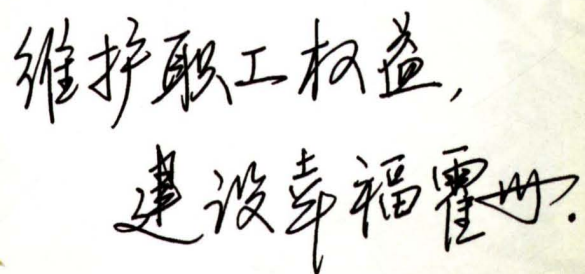 维护职工权益,
建设幸福霍州.